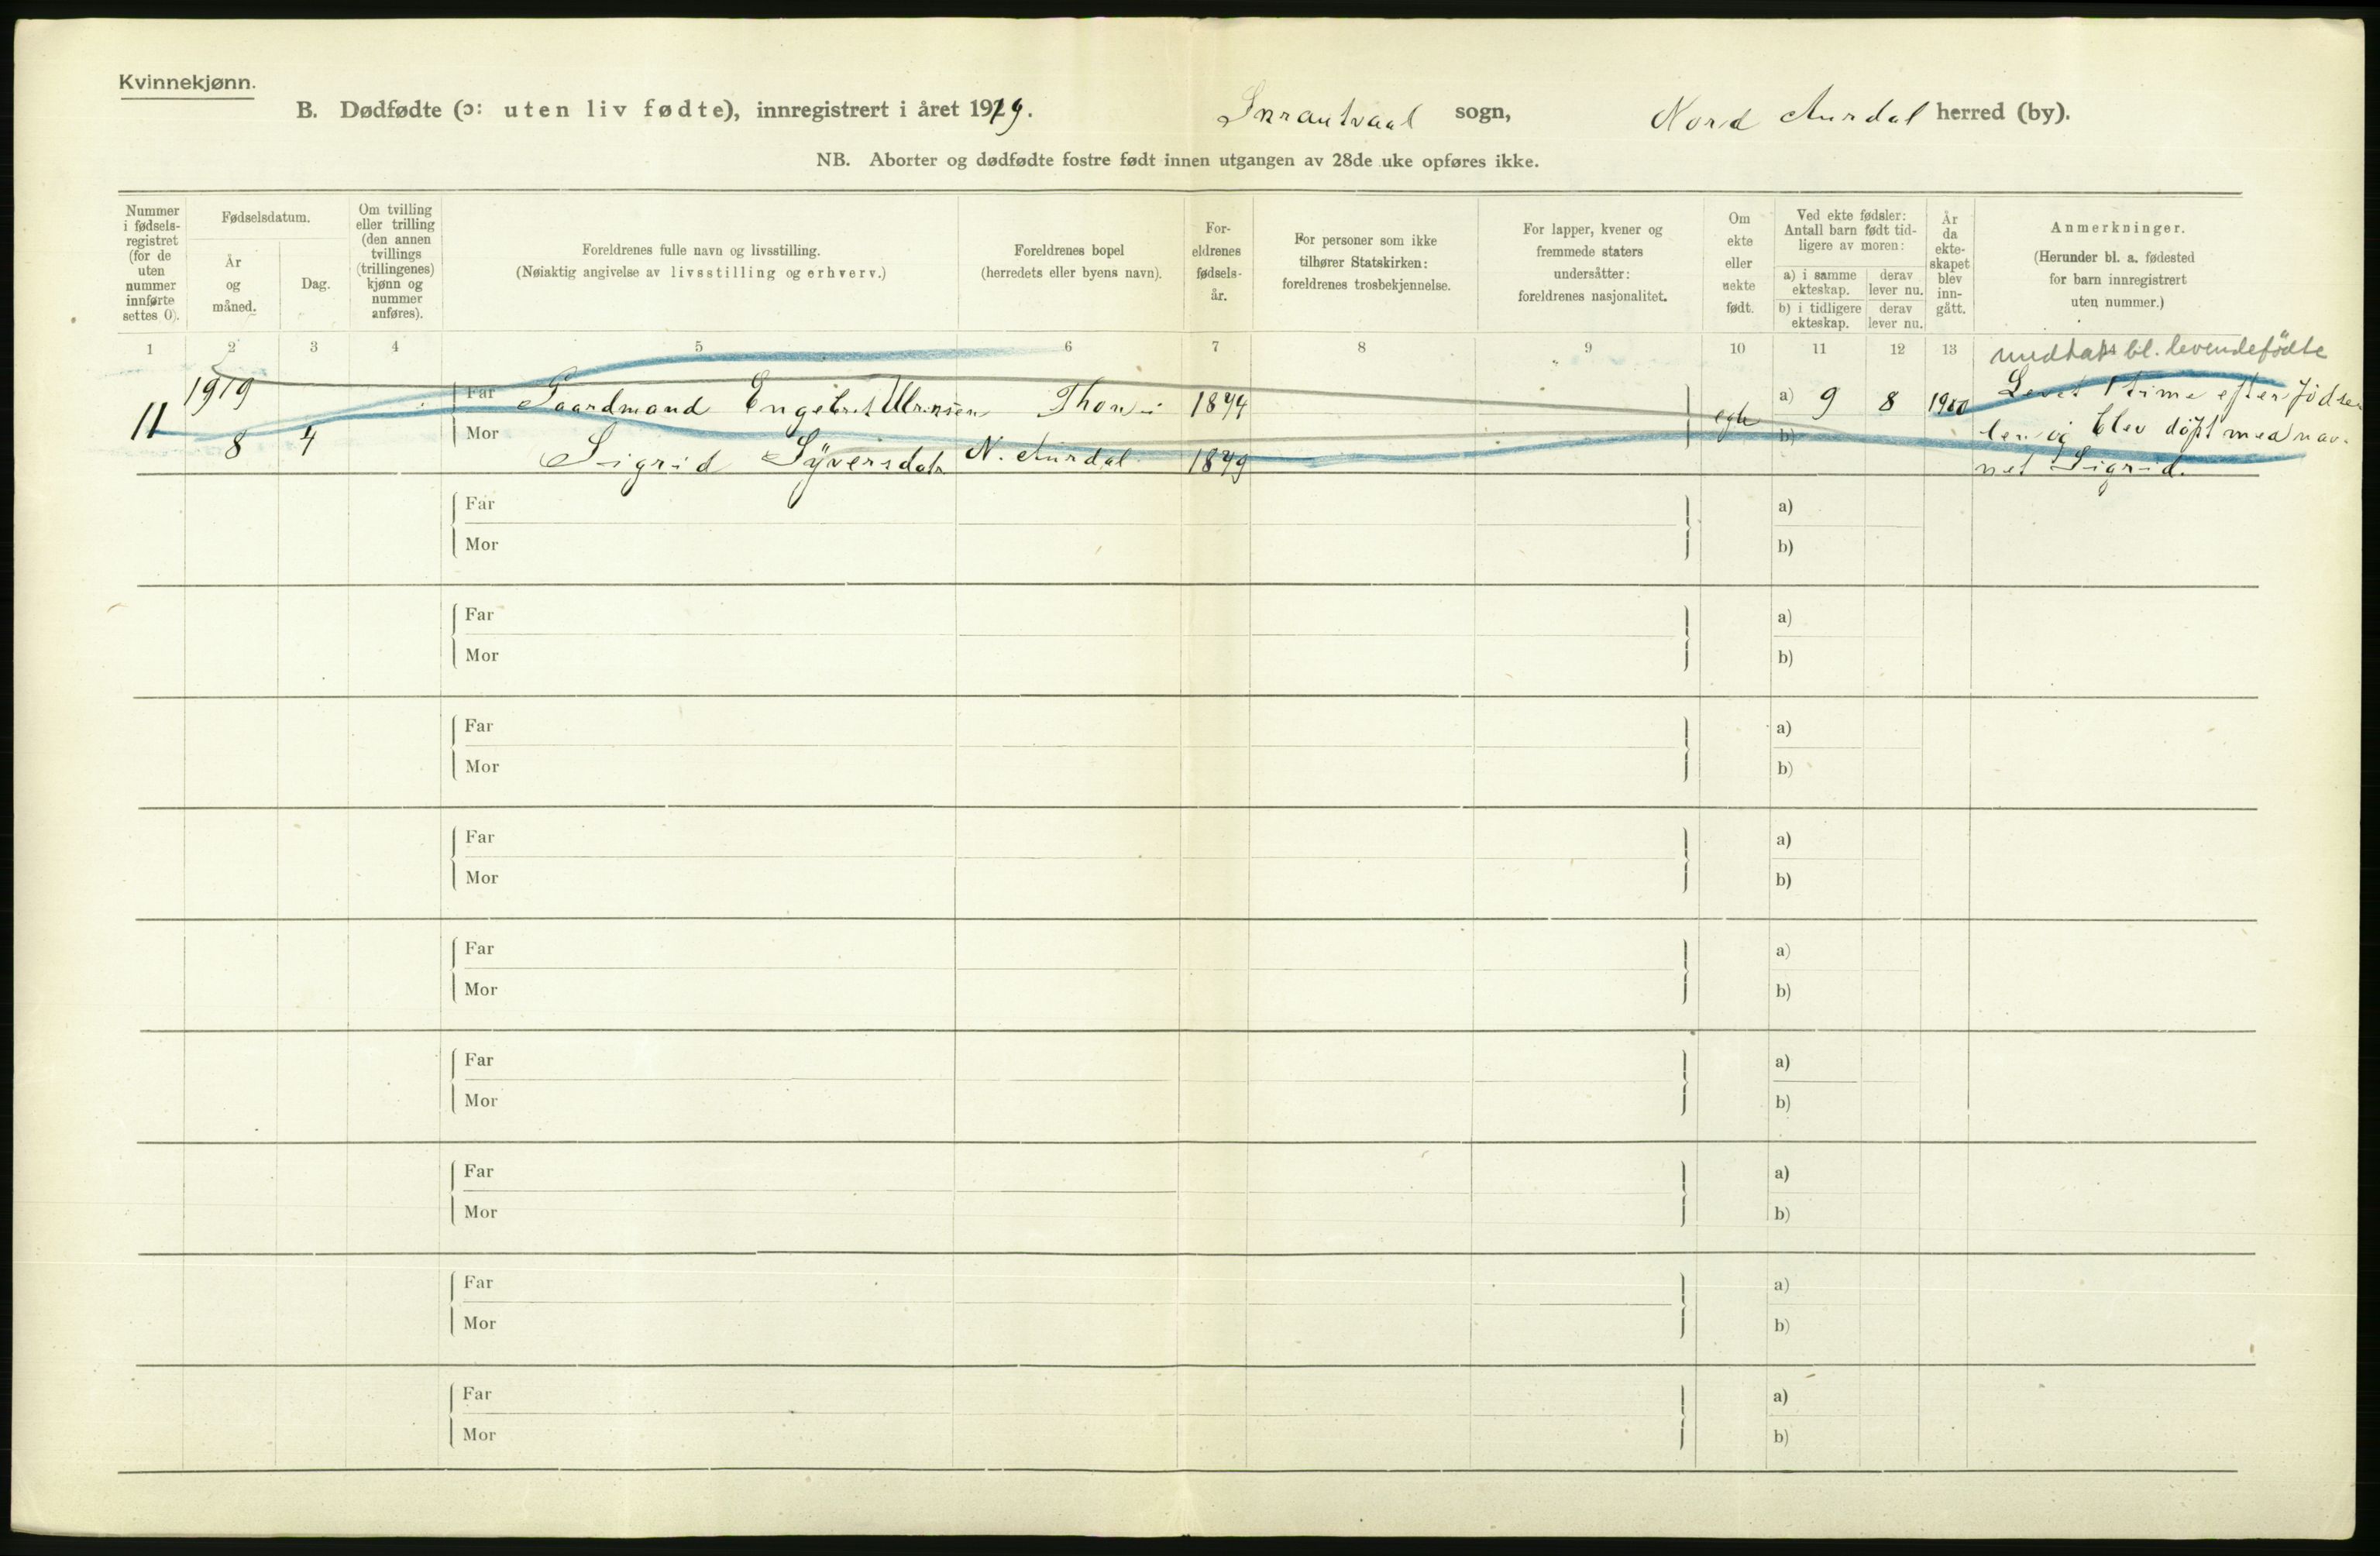 Kvinnekjønn.
B. Dødfødte (ɔ: uten liv fødte), innregistrert i året 1919. sogn, Nord Aurdal herred (by).
NB. Aborter og dødfødte fostre født innen utgangen av 28de uke opføres ikke.
Nummer i fødsels- registret (for de uten nummer innførte settes 0).
Fødselsdatum.
År og måned.
Dag.
Om tvilling eller trilling (den annen tvillings (trillingenes) kjønn og nummer anføres).
Foreldrenes fulle navn og livsstilling.
(Nøiaktig angivelse av livsstilling og erhverv.)
Foreldrenes bopel
(herredets eller byens navn).
For- eldrenes fødsels- år.
For personer som ikke tilhører Statskirken: foreldrenes trosbekjennelse.
For lapper, kvener og fremmede staters undersåtter: foreldrenes nasjonalitet.
Om ekte eller uekte født.
Ved ekte fødsler: Antall barn født tid- ligere av moren:
a) i samme ekteskap.
derav lever nu.
b) i tidligere ekteskap.
derav lever nu.
År da ekte- skapet blev inn- gått.
Anmerkninger.
(Herunder bl. a. fødested for barn innregistrert uten nummer.)
1 2 3 4 5 6 7 8 9 10 11 12 13
medtatt bl. levendefødte
11 1919 8 4
Far Gaardmand Engebret Thon 1874
Mor Sigrid Syversdatr N. Aurdal 1879
egte a) 9 8 1900
b)
Levet 1 time efter fødse-
len og blev døpt med nav-
net Sigrid.
Far a)
Mor b)
Far a)
Mor b)
Far a)
Mor b)
Far a)
Mor b)
Far a)
Mor b)
Far a)
Mor b)
Far a)
Mor b)
Far a)
Mor b)
Far a)
Mor b)